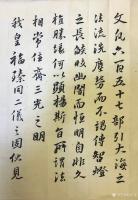 文凡六百五十七部引大海之
法流洗塵勞而不竭傳智燈
之長焰皎幽闇而恒明自非久
植勝緣何以顯揚斯旨所謂法
相常住齊三光之明
我皇福臻同二儀之固伏見